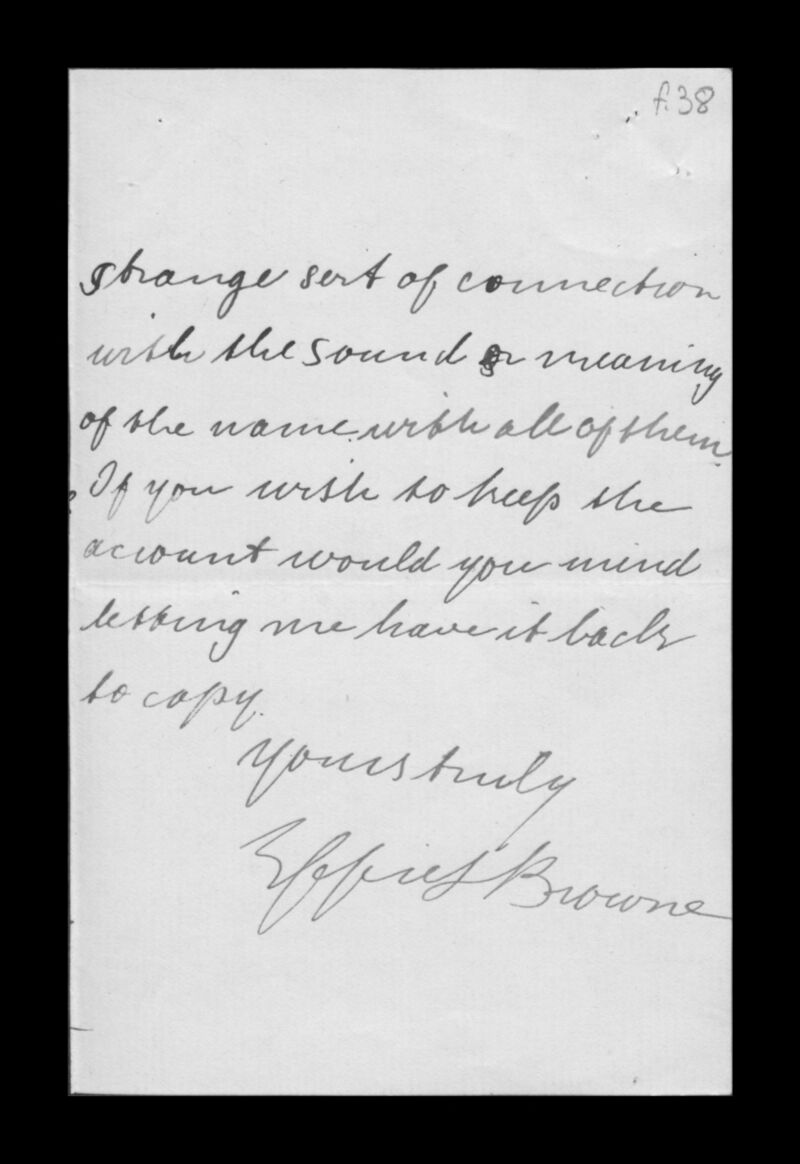 f.38
strange sort of connection
with the sound or meaning
of the name with all of them.
If you wish to keep the
account would you mind
letting me have it back
to copy.
Yours truly
Effie L Browne